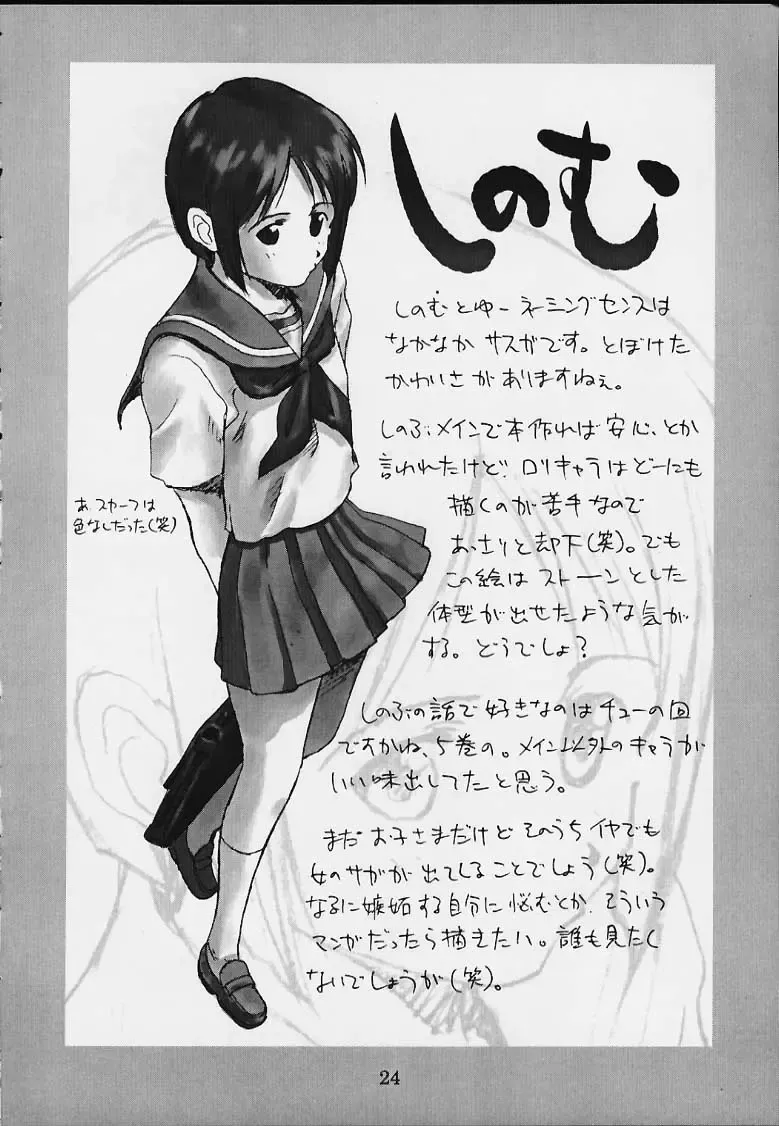 しのむ
しのむとゆーネーミングセンスは
なかなかサスガです。とぼけた
かわいさがありますねぇ。
しのぶメインで本作れば安心、とか
言われたけど、ロリキャラはどーにも
描くのが苦手なので
あっさりと却下(笑)。でも
この絵はストーンとした
体型が出せたような気が
する。どうでしょ?
あ、スカーフは
色なしだった(笑)
しのぶの話で好きなのはチューの回
ですかね、5巻の。メイン以外のキャラが
いい味出してたと思う。
まだお子さまだけどそのうちイヤでも
女のサガが出てくることでしょう(笑)。
なるに嫉妬する自分に悩むとか、そういう
マンガだったら描きたい。誰も見たく
ないでしょうが(笑)。
24